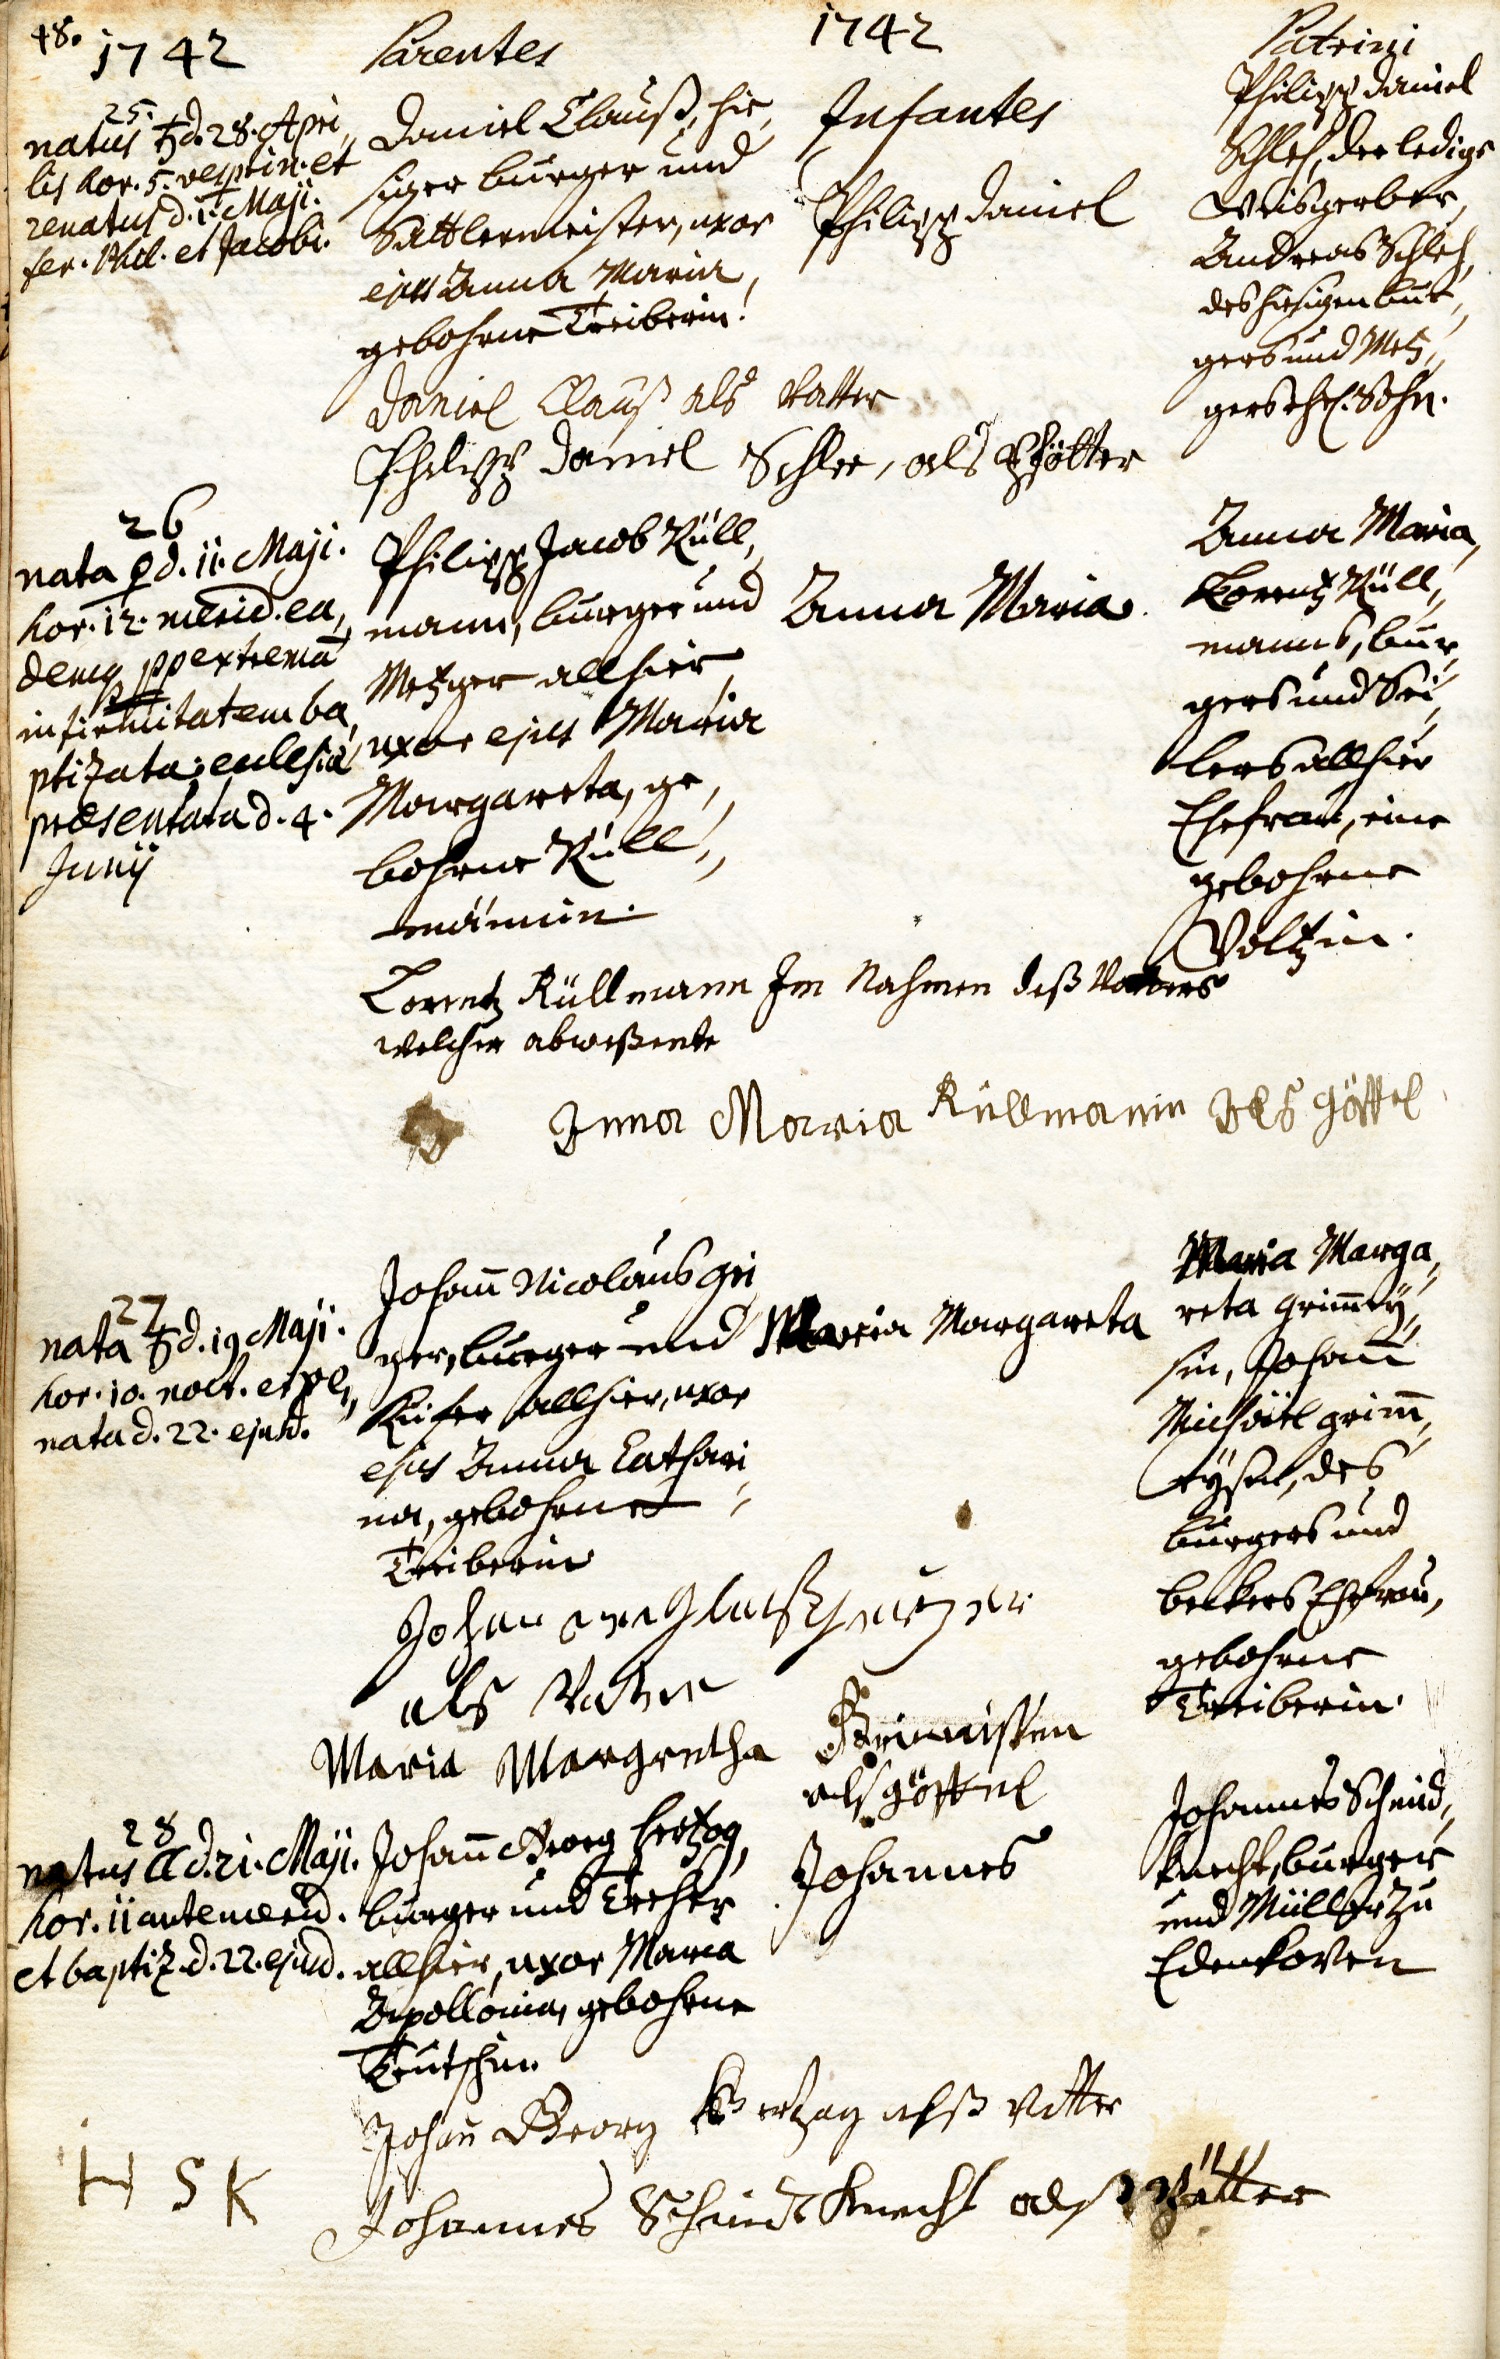 48.
1742
Parentes
1742
Patrini
25.
natus ♄ d. 28. Apri,
lis hor. 5. vespertin. et
renatus d. 1. Maji.
fer. Phil. et Jacobi.
Daniel Clauß, hie,
siger burger und
Sattlermeister, uxor
ejus Anna Maria,
gebohrne Treiberin.
Infantes
Philipp Daniel
Philipp Daniel
Schleh, der ledige
Weisgerber,
Andreas Schleh,
des hiesigen bur,
gers und Metz,
gers ehl. Sohn.
Daniel Clauß als Vatter
Philipp Daniel Schlee, als Pfötter
26
nata ♀ d. 11. Maji.
hor. 12. merid. ea,
demq ppextremā
infirmitatem ba,
ptizata; ecclesiæ
præsentata d. 4.
Junij
Philipp Jacob Rüll,
mann, burger und
Metzger allhier,
uxor ejus Maria
Margareta, ge,
bohrne Rüll,
männin.
Anna Maria
Anna Maria,
Lorentz Rüll,
manns, bur,
gers und Sei,
lers allhier
Ehefrau, eine
gebohrne
Voltzin.
Lorentz Rüllmann Im Nahmen deß Vatters
welcher abweßente
Anna Maria Rüllmanin Als Göttel
27
nata ♄ d. 19 Maji.
hor. 10. noct. et re,
nata d. 22. ejusd.
Johann Nicolaus Gei,
ger, burger und
Kiefer allhier, uxor
ejus Anna Cathari,
na, gebohrne
Treiberin
Maria Margareta
Maria Marga,
reta Grimmey,
sin, Johann
Michael Grimm,
eysen, des
burgers und
beckers Ehefrau,
gebohrne
Treiberin.
als Vatter
Maria Margretha Grimmeisen
als Göttel
28
natus ☾ d. 21. Maji.
hor. 11 antemerid.
et baptiz. d. 22. ejusd.
Johann Georg Hertzog,
burger und Dreher
allhier, uxor Maria
Apollonia, gebohrne
Teutschin.
Johannes
Johannes Schmid,
knecht, burger
und Müller zu
Edenkoven
Johan Georg Hertzog alß Vatter
H S K
Johannes Schmidt Knecht alß Pfätter